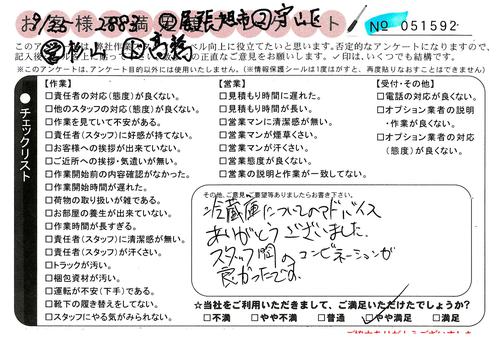 9/26 2883 尾張旭市 守山区
お客様 満 ート
No 051592
杉山 高橋
このア 弊社作業スタッフ ベル向上に役立てたいと思います。否定的なアンケートになりますので、
記入後 の正直なご意見をお願いします。✓印は、いくつでも結構です。
※このアンケートは、アンケート目的以外には使用いたしません。(※情報保護シールは1度はがすと、再度貼りなおすことはできません)
チェックリスト
【作業】
□責任者の対応(態度)が良くない。
□他のスタッフの対応(態度)が良くない。
□作業を見ていて不安がある。
□責任者(スタッフ)に好感が持てない。
□お客様への挨拶が出来ていない。
□ご近所への挨拶・気遣いが無い。
□作業開始前の内容確認がなかった。
□作業開始時間が遅れた。
□荷物の取り扱いが雑である。
□お部屋の養生が出来ていない。
□作業時間が長すぎる。
□責任者(スタッフ)に清潔感が無い。
□責任者(スタッフ)が汗くさい。
□トラックが汚い。
□梱包資材が汚い。
□運転が不安(下手)である。
□靴下の履き替えをしてない。
□スタッフにやる気がみられない。
【営業】
□見積もり時間に遅れた。
□見積もり時間が長い。
□営業マンに清潔感が無い。
□営業マンが煙草くさい。
□営業マンが汗くさい。
□営業態度が良くない。
□営業の説明と作業が一致してない。
【受付・その他】
□電話の対応が良くない。
□オプション業者の説明
・作業が良くない。
□オプション業者の対応
(態度)が良くない。
その他、ご意見・ご要望等ありましたらお書き下さい。
冷蔵庫についてのアドバイス
ありがとうございました。
スタッフ間のコンビネーションが
良かったです。
☆当社をご利用いただきまして、ご満足いただけたでしょうか?
□不満 □やや不満 □普通 ☑やや満足 □満足
ご協力ありがとうございました